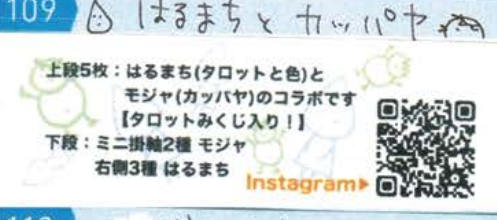 109 はるまちとカッパヤ
上段5枚：はるまち(タロットと色)と
モジャ(カッパヤ)のコラボです
【タロットみくじ入り！】
下段：ミニ掛軸2種 モジャ
右側3種 はるまち
Instagram▶